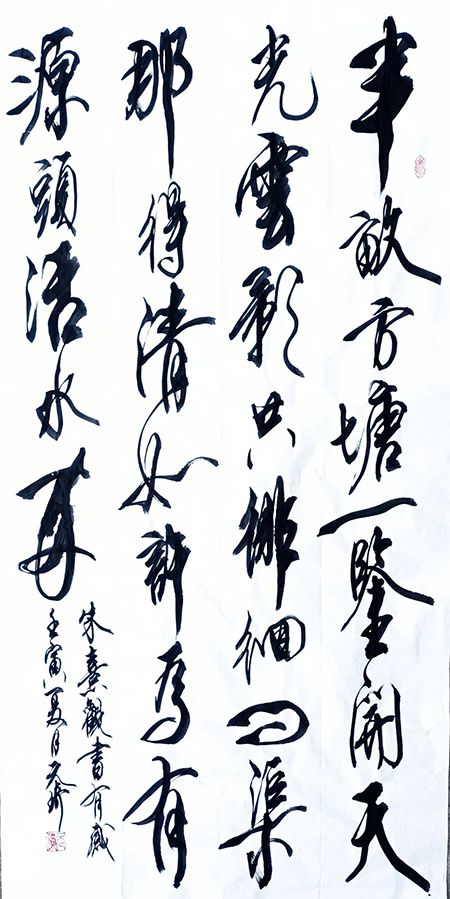 半畝方塘一鑒開天
光雲影共徘徊问渠
那得清如許為有
源頭活水来
朱熹觀書有感
壬寅夏月